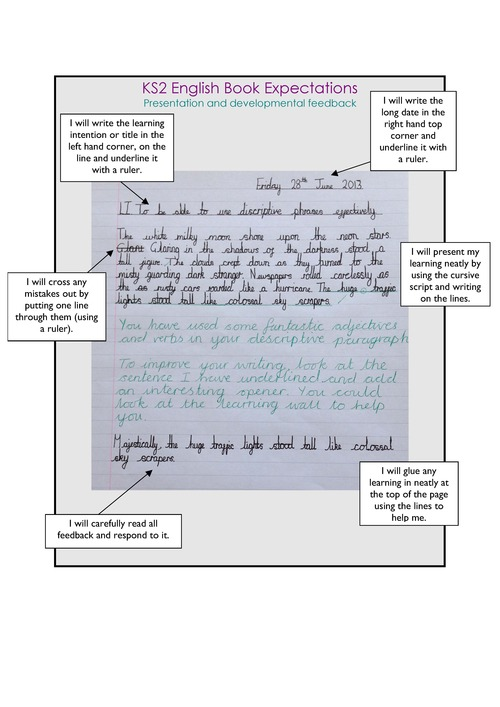 KS2 English Book Expectations
Presentation and developmental feedback
I will write the
long date in the
right hand top
corner and
underline it with
a ruler.
I will write the learning
intention or title in the
left hand corner, on the
line and underline it
with a ruler.
Friday 28th June 2013
LI To be able to use discriptive phrases effectively
The white milky moon shone upon the neon stars.
Giant Glaring in the shadows of the darkness stood a
tall figure. The clouds crept down as they turned to the
misty guarding dark stranger. Newspapers rolled carelessly as
the as rusty cars roared like a hurricane. The huge traffic
lights stood tall like colossal sky scrapers.
I will present my
learning neatly by
using the cursive
script and writing
on the lines.
I will cross any
mistakes out by
putting one line
through them (using
a ruler).
You have used some fantastic adjectives
and verbs in your descriptive paragraph
To improve your writing, look at the
sentence I have underlined and add
an interesting opener. You could
look at the learning wall to help
you.
Majestically, the huge traffic lights stood tall like colossal
sky scrapers.
I will glue any
learning in neatly at
the top of the page
using the lines to
help me.
I will carefully read all
feedback and respond to it.